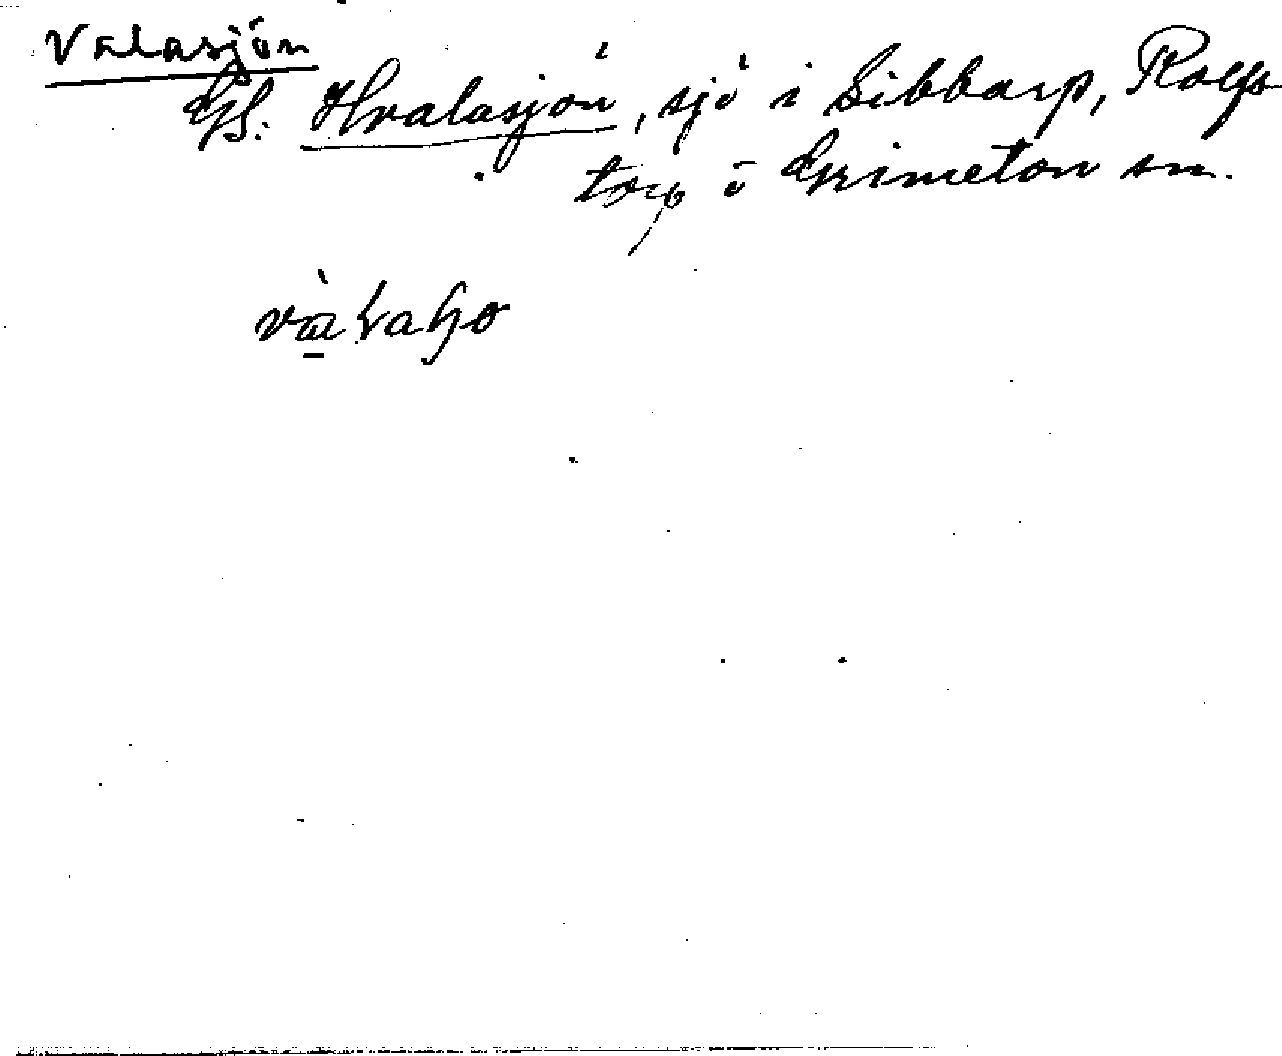 Valasjön
Gs. Hvalasjön, sjö i Sibbarp, Rolfs
torp o Grimeton sn.